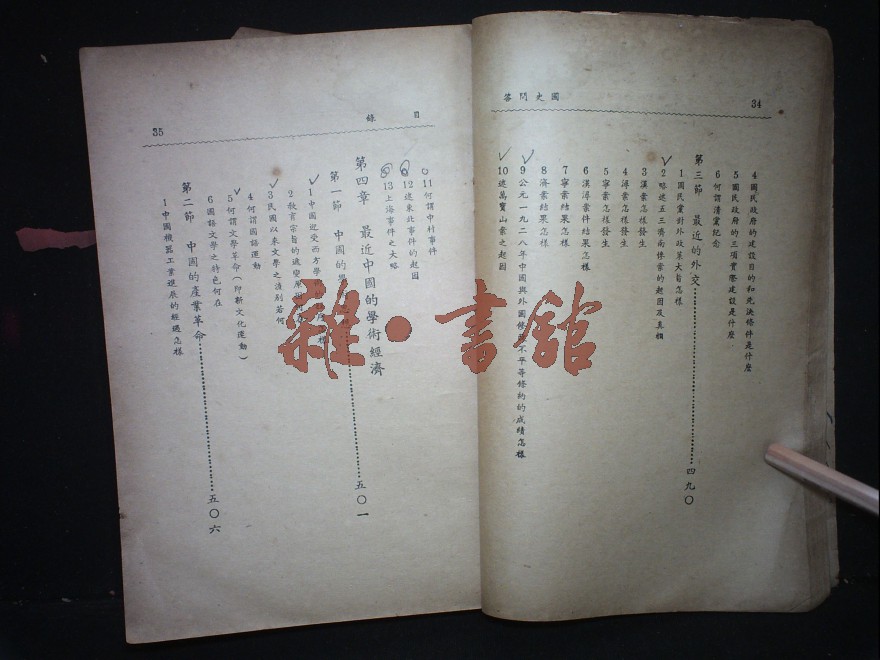 國史問答
34
4 國民政府的建設目的和先決條件是什麼
5 國民政府的三項實際建設是什麼
6 何謂清黨紀念
第三節 最近的外交 四九〇
1 國民黨對外政策大旨怎樣
2 略述五三濟南慘案的起因及真相
3 漢案怎樣發生
4 潯案怎樣發生
5 寧案怎樣發生
6 漢潯案件結果怎樣
7 寧案結果怎樣
8 濟案結果怎樣
9 公元一九二八年中國與外國修不平等條約的成績怎樣
10 述萬寶山案之起因
目錄
35
11 何謂中村事件
12 述東北事件的起因
13 上海事件之大略
第四章 最近中國的學術經濟
第一節 中國的學 五〇一
1 中國近受西方學
2 教育宗旨的遞變
3 民國以來文學之派別若何
4 何謂國語運動
5 何謂文學革命(即新文化運動)
6 國語文學之特色何在
第二節 中國的產業革命 五〇六
1 中國機器工業進展的經過怎樣
雜·書館